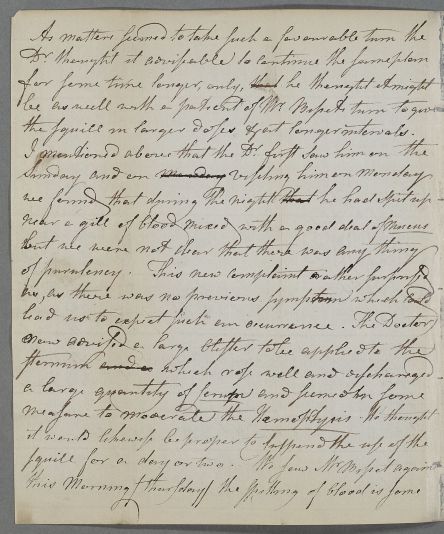 As matters seemed to take such a favourable turn the
Dr thought it adviseable to continue the same plan
for some time longer, only, that he thought it might
be as well with a patient of Mr Misset's turn to give
the squill in larger doses & at longer intervals.
I mentioned above that the Dr first saw him on the
Sunday and on monday visiting him on Monday
we found that during the night that he had spit up
near a gill of blood mixed with a good deal of mucus
but we were not clear that there was any thing
of purulency. This new complaint rather surprised
us, as there was no previous symptom which could
lead us to expect such an occurrence. The Doctor
now advised a large blister to be applied to the
sternum which rose well and discharged
a large quantity of serum and seemed in some
measure to moderate the Hæmoptysis. He thought
it would likewise be proper to suspend the use of the
squill for a day or two. We saw Mr Misset again
this Morning/thursday/ the spitting of blood is some